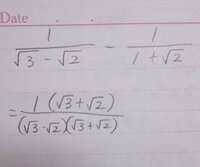 Date
1/(√3 − √2) − 1/(1 + √2)
= 1(√3 + √2)/(√3 − √2)(√3 + √2)